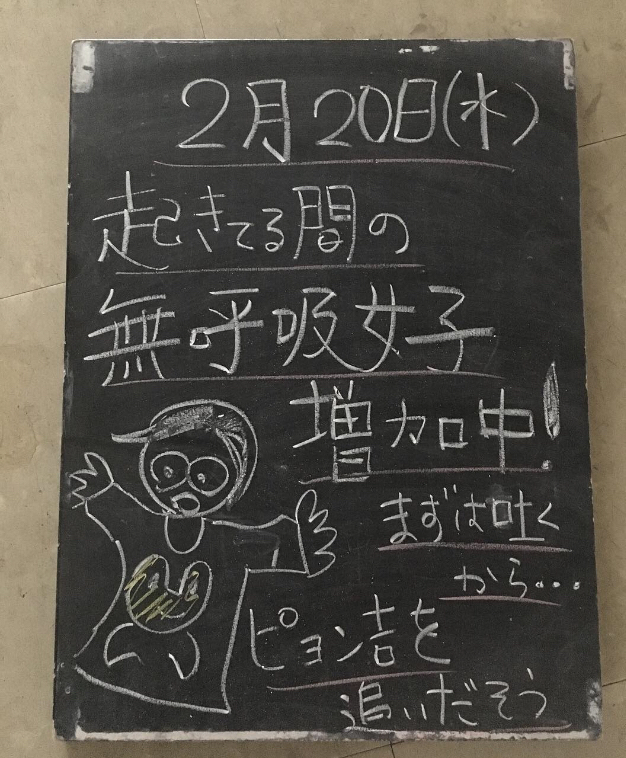 2月20日(水)
起きてる間の
無呼吸女子
増加中!
まずは吐く
から...
ピョン吉を
追いだそう